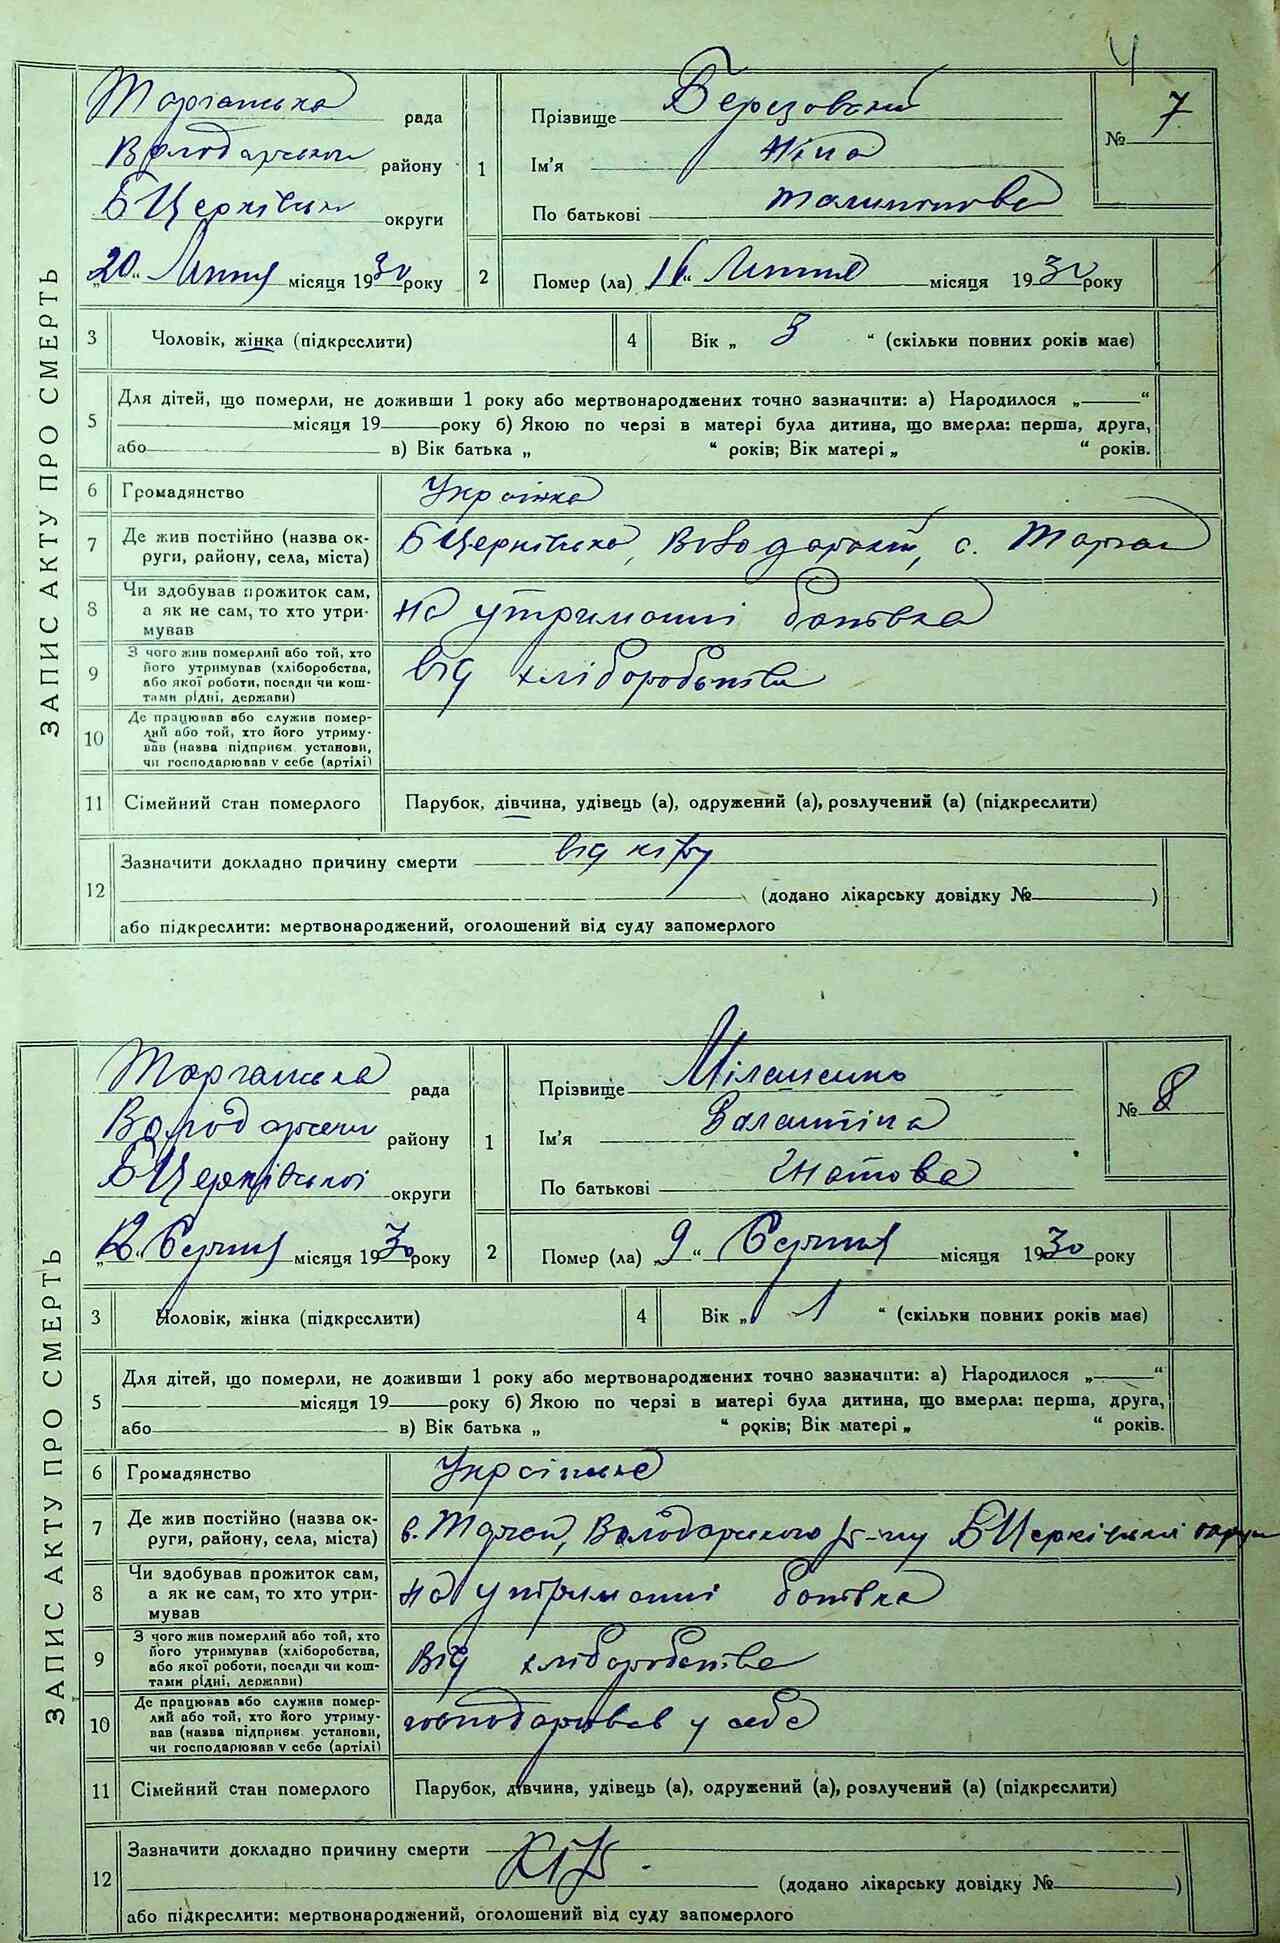 4
ЗАПИС АКТУ ПРО СМЕРТЬ
Тарганська рада
Володарського району
БЦерківськ округи
„20“ Липня місяця 1930 року
1
Прізвище Березовский
Ім'я Ніна
По батькові
№ 7
2 Помер (ла) „16“ Липня місяця 1930 року
3 Чоловік, жінка (підкреслити)
4 Вік „ 3 “ (скільки повних років має)
5 Для дітей, що померли, не доживши 1 року або мертвонароджених точно зазначити: а) Народилося „ “
місяця 19 року б) Якою по черзі в матері була дитина, що вмерла: перша, друга,
або в) Вік батька „ “ років; Вік матері „ “ років.
6 Громадянство Українка
7 Де жив постійно (назва ок-
руги, району, села, міста) БЦерківська, Володарский, с. Тарган
8 Чи здобував прожиток сам,
а як не сам, то хто утри-
мував на утриманні батька
9 З чого жив померлий або той, хто
його утримував (хліборобства,
або якої роботи, посади чи кош-
тами рідні, держави) від хліборобства
10 Де працював або служив помер-
лий або той, хто його утриму-
вав (назва підприєм. установи,
чи господарював у себе (артілі)
11 Сімейний стан померлого Парубок, дівчина, удівець (а), одружений (а), розлучений (а) (підкреслити)
12 Зазначити докладно причину смерти від кіру
(додано лікарську довідку № )
або підкреслити: мертвонароджений, оголошений від суду запомерлого
ЗАПИС АКТУ ПРО СМЕРТЬ
Тарганська рада
Володарський району
БЦерківської округи
Серпня місяця 1930 року
1
Прізвище Міляшенко
Ім'я Валентіна
По батькові Гнатова
№ 8
2 Помер (ла) „9“ Серпня місяця 1930 року
3 Чоловік, жінка (підкреслити)
4 Вік „ 1 “ (скільки повних років має)
5 Для дітей, що померли, не доживши 1 року або мертвонароджених точно зазначити: а) Народилося „ “
місяця 19 року б) Якою по черзі в матері була дитина, що вмерла: перша, друга,
або в) Вік батька „ “ років; Вік матері „ “ років.
6 Громадянство Українка
7 Де жив постійно (назва ок-
руги, району, села, міста) с. Тарган, Володарского р-ну БЦерківської округи
8 Чи здобував прожиток сам,
а як не сам, то хто утри-
мував на утриманні батька
9 З чого жив померлий або той, хто
його утримував (хліборобства,
або якої роботи, посади чи кош-
тами рідні, держави) від хліборобства
10 Де працював або служив помер-
лий або той, хто його утриму-
вав (назва підприєм. установи,
чи господарював у себе (артілі) господарював у себе
11 Сімейний стан померлого Парубок, дівчина, удівець (а), одружений (а), розлучений (а) (підкреслити)
12 Зазначити докладно причину смерти Кір.
(додано лікарську довідку № )
або підкреслити: мертвонароджений, оголошений від суду запомерлого